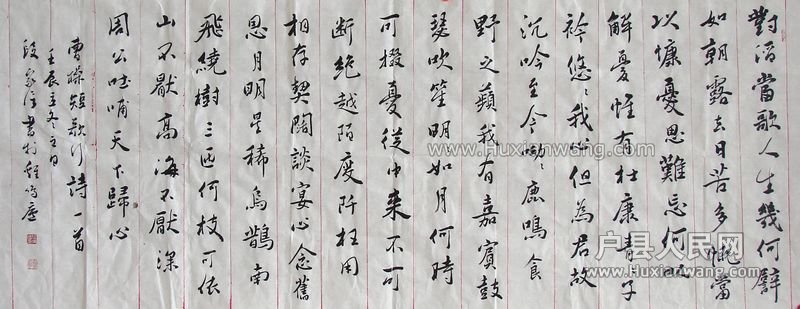 對酒當歌人生幾何譬
如朝露去日苦多慨當
以慷憂思難忘何以
解憂惟有杜康青子
衿悠悠我心但為君故
沉吟至今呦呦鹿鳴食
野之蘋我有嘉賓鼓
瑟吹笙明明如月何時
可掇憂從中來不可
斷絕越陌度阡枉用
相存契闊談宴心念舊
恩月明星稀烏鵲南
飛繞樹三匝何枝可依
山不厭高海不厭深
周公吐哺天下歸心
曹操短歌行詩一首
壬辰年冬
段家 書於
www.Huxianwang.com
www.Huxianwang.com
户县人民网
www.Huxianwang.com